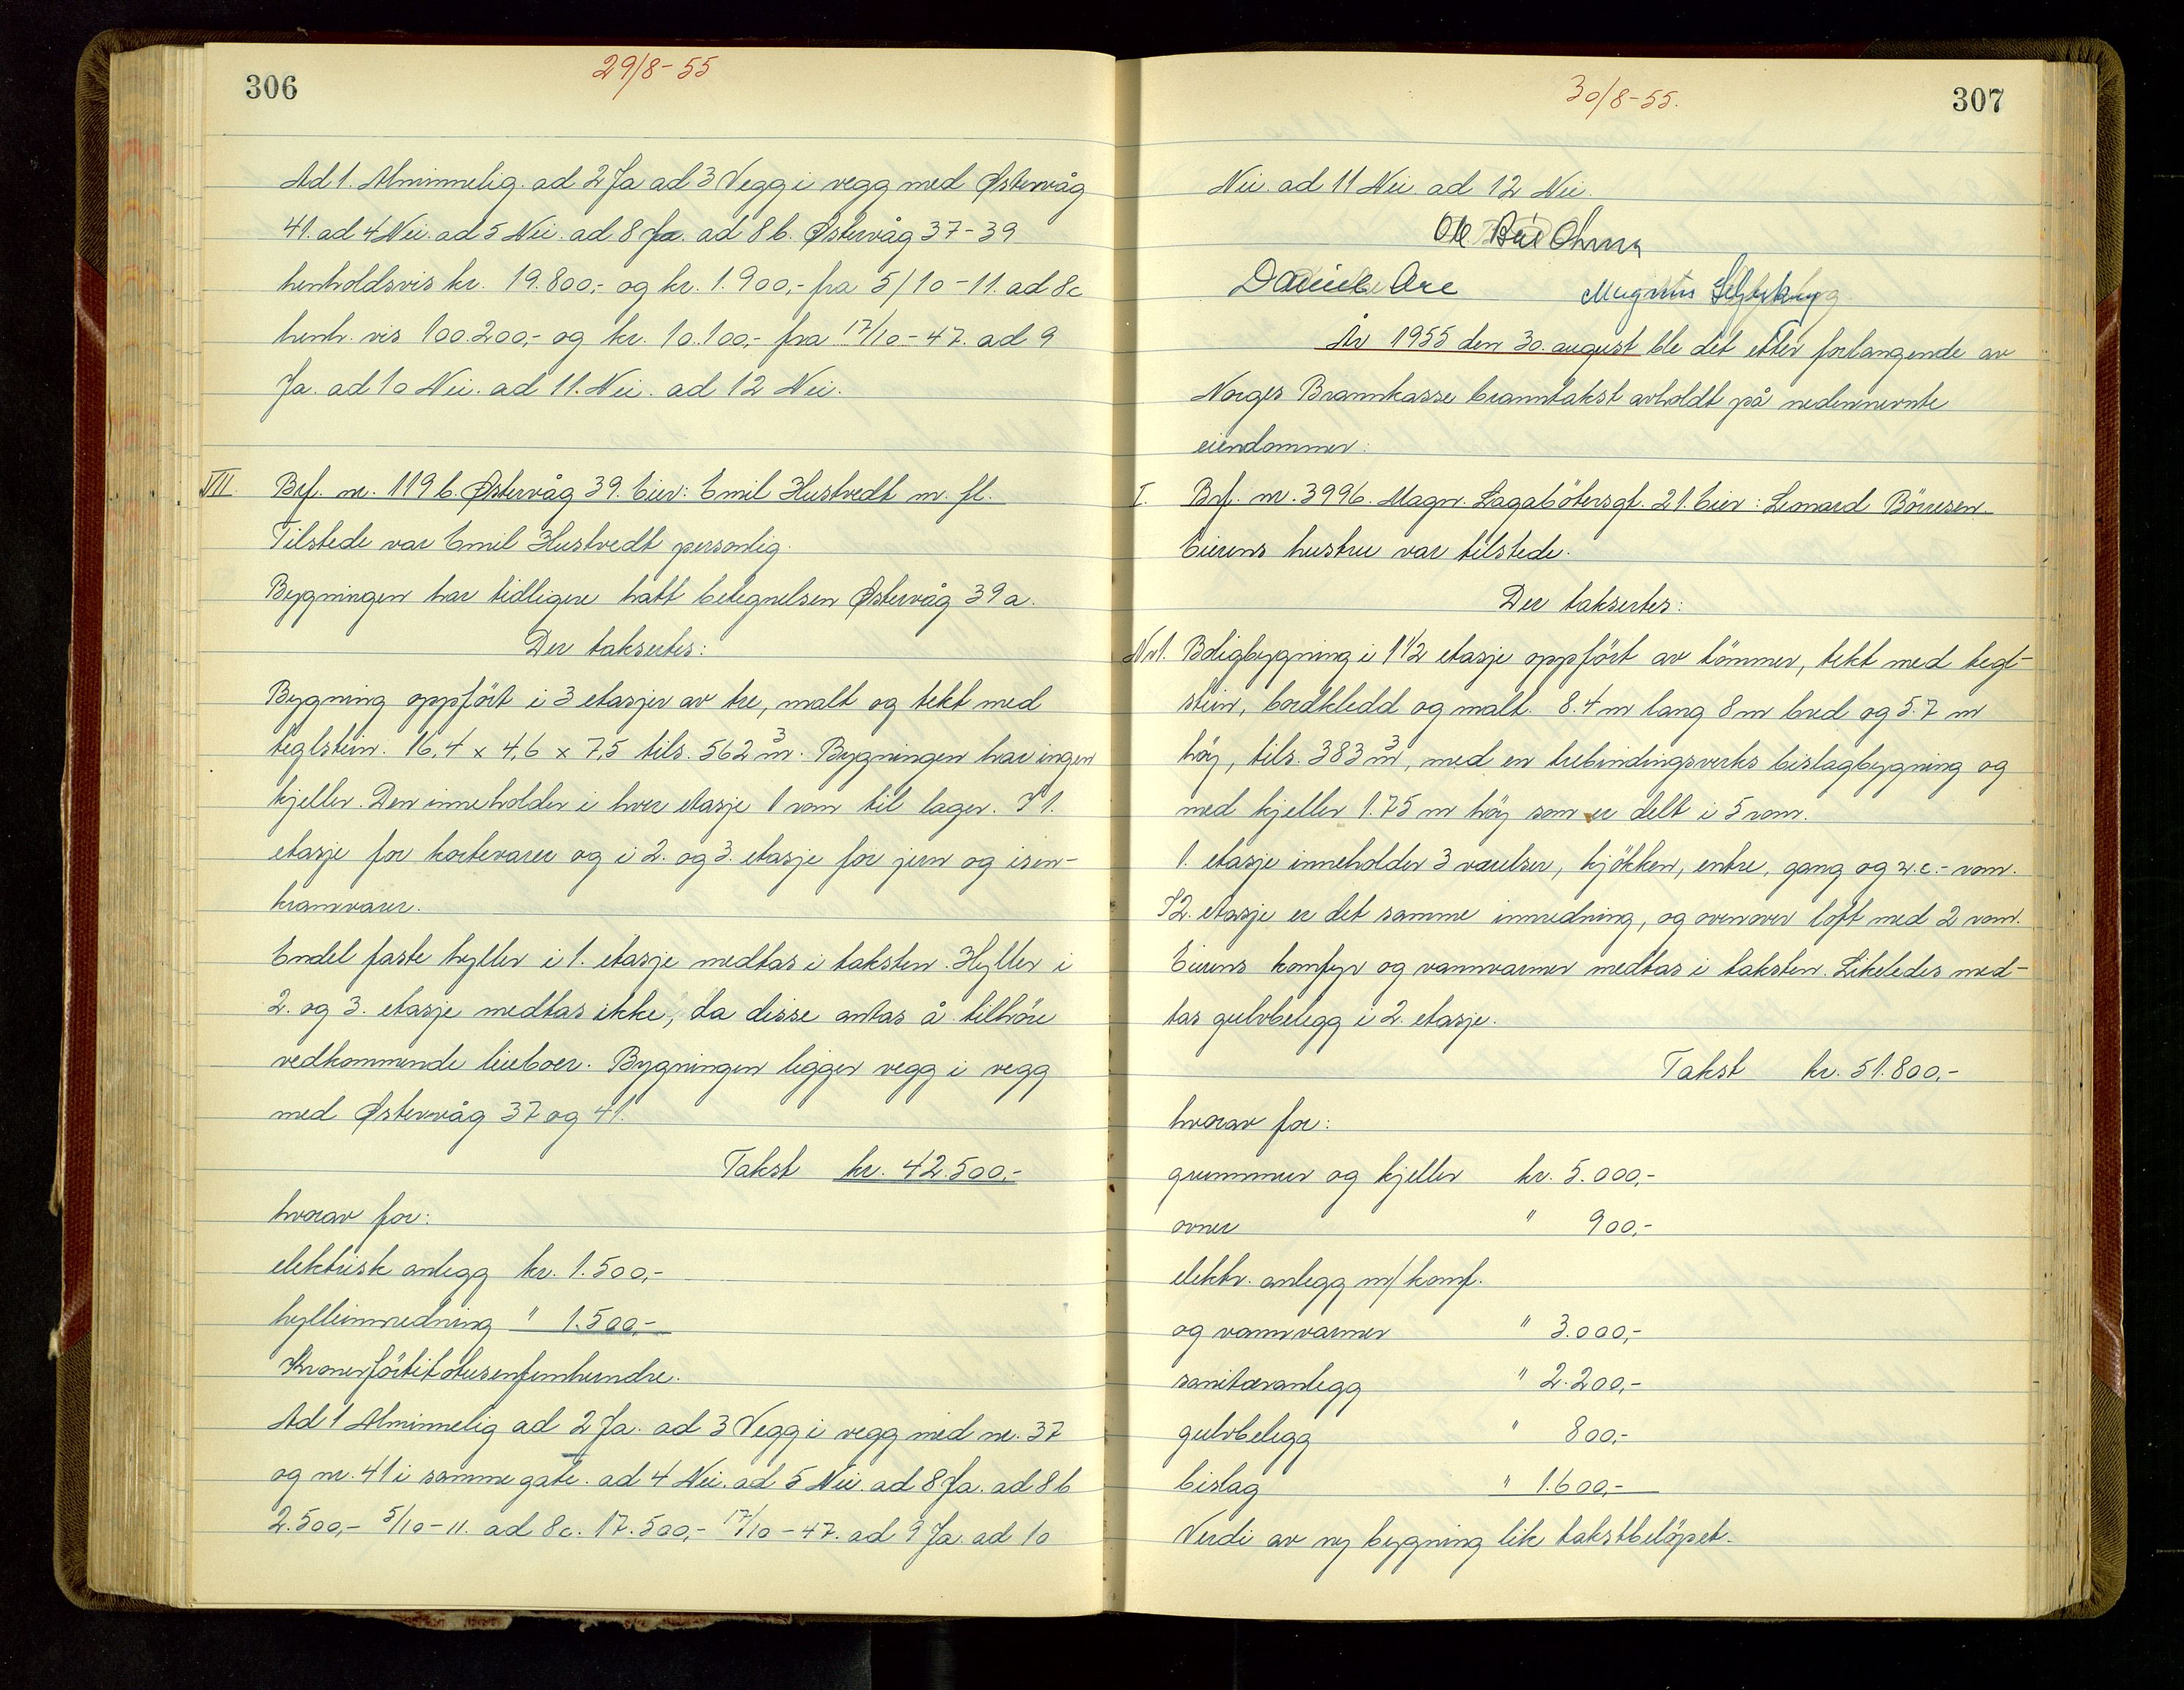 306
29/8-55
Ad 1. Alminnelig. ad 2 Ja ad 3 Vegg i vegg med Østervåg
41. ad 4 Nei. ad 5 Nei. ad 8 Ja. ad 8 b. Østervåg 37-39
henholdsvis kr. 19.800,- og kr. 1.900,- fra 5/10-11. ad 8c
henh. vis 100.200,- og kr. 10.100,- fra 17/10-47. ad 9
Ja. ad 10 Nei. ad 11. Nei. ad 12 Nei.
VII. Brf. nr. 119 b. Østervåg 39. Eier: Emil Hustvedt m. fl.
Tilstede var Emil Hustvedt personlig.
Bygningen har tidligere hatt betegnelsen Østervåg 39a.
Der taksertes:
Bygning oppført i 3 etasjer av tre, malt og tekt med
teglstein. 16,4 x 4,6 x 7,5 tils. 562 m³. Bygningen har ingen
kjeller. Den inneholder i hver etasje 1 rom til lager. I 1.
etasje for kortevarer og i 2. og 3. etasje for jern og isen-
kramvarer.
Endel faste hyller i 1. etasje medtas i taksten. Hyller i
2. og 3. etasje medtas ikke, da disse antas å tilhöre
vedkommende leieboer. Bygningen ligger vegg i vegg
med Østervåg 37 og 41.
Takst kr. 42.500,-
hvorav for:
elektrisk anlegg kr. 1.500,-
hylleinnredning " 1.500,-
Kronerförtitotusenfemhundre.
Ad 1 Alminnelig ad 2 Ja. ad 3 Vegg i vegg med nr. 37
og nr. 41 i samme gate. ad 4 Nei. ad 5 Nei. ad 8 Ja. ad 8 b
2.500,- 5/10-11. ad 8c. 17.500,- 17/10-47. ad 9 Ja. ad 10
30/8-55.
307
Nei. ad 11 Nei. ad 12 Nei.
Magnus
År 1955 den 30. august ble det etter forlangende av
Norges Brannkasse branntakst avholdt på nedennevnte
eiendommer:
I. Brf. nr. 3996. Magn. Lagabötersgt. 21. Eier: Leonard Börresen
Eierens hustru var tilstede.
Der taksertes:
Nr 1. Boligbygning i 1 1/2 etasje oppfört av tömmer, tekt med tegl-
stein, bordkledd og malt. 8.4 m lang 8 m bred og 5.7 m
höy, tils. 383 m³, med en trebindingsverks bislagbygning og
med kjeller 1.75 m höy som er delt i 5 rom.
1. etasje inneholder 3 værelser, kjökken, entre, gang og w.c.-rom.
I 2. etasje er det samme innredning, og ovenover loft med 2 rom.
Eierens komfyr og vannvarmer medtas i taksten. Likeledes med-
tas gulvbelegg i 2. etasje.
Takst kr. 51.800,-
hvorav for:
grunnmur og kjeller kr. 5.000,-
ovner " 900,-
elektr. anlegg m/komf.
og vannvarmer " 3.000,-
sanitæranlegg " 2.200,-
gulvbelegg " 800,-
bislag " 1.600,-
Verdi av ny bygning lik takstbelöpet.